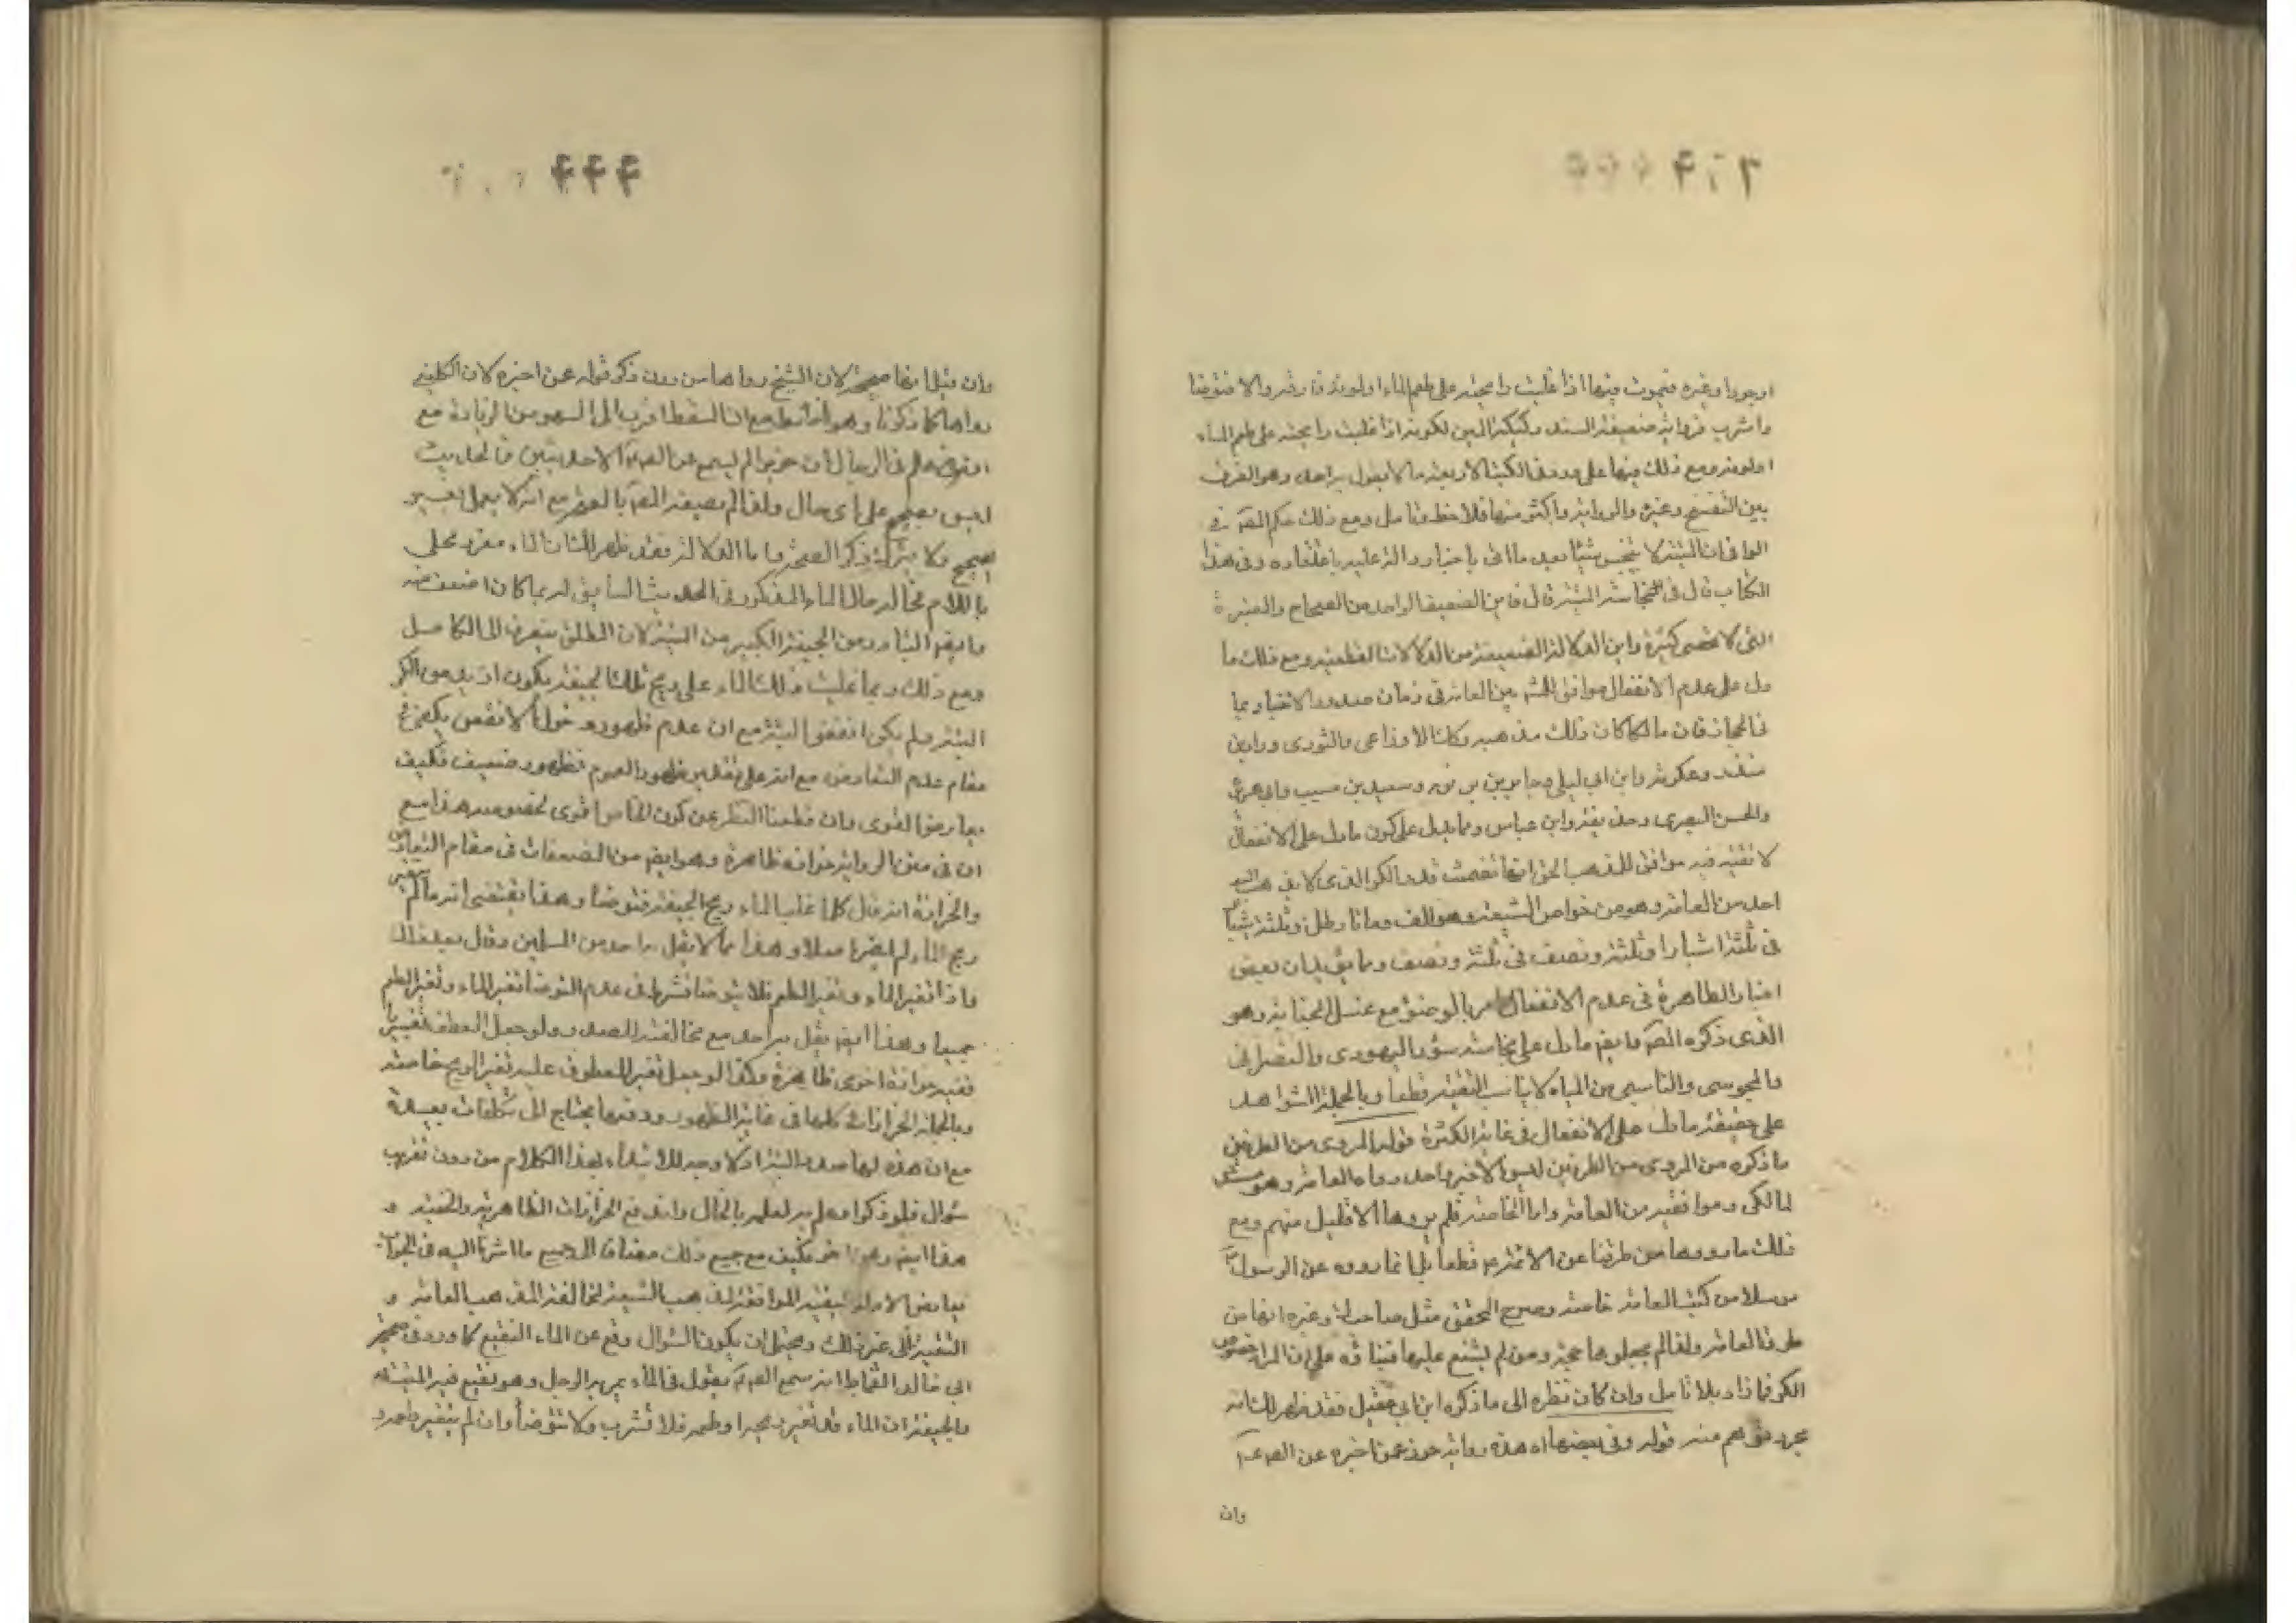 او جرذا وغيره فيموت فيها اذا غلبت رائحته على طعم الماء او لونه فلا تشربه والا فتوضأ
واشرب فرواية ضعيفة السند وركيكة المتن لكونه اذا غلبت رائحته على طعم الماء
او لونه ومع ذلك فيها على ورد في الكتب الاربعة ما لا يقول به احد وهو الفرق
بين التفسخ وغيره والرواية واكثر منها فلاحظ وتأمل ومع ذلك حكم المص في
الوافي ان البئر لا ينجس بشئ بعد ما اتى باخبار دالة عليه باعتقاده وفي هذا
الكتاب قال في نجاسة البئر قال فاين الضعيف الواحد من الصحاح والمعتبرة
التي لا تحصى كثرة واين الدلالة الضعيفة من الدلالات القطعية ومع ذلك ما
دل على عدم الانفعال موافق للمشهور بين العامة في زمان صدور الاخبار بما
في الحجاز فان مالكا كان ذلك مذهبه وكذا الاوزاعي والثوري وداود وابن
منذر وعكرمة وابن ابي ليلى وجابر بن يزيد وسعيد بن مسيب وابي هريرة
والحسن البصري وحذيفة وابن عباس ومما يدل على كون ما دل على الانفعال
لا تقية فيه موافق للمذهب الحق انها تضمنت قدر الكر الذي لا يذهب اليه
احد من العامة وهو من خواص الشيعة وهو الف ومائتا رطل وثلثة اشبار
في ثلثة اشبار او ثلثة ونصف في ثلثة ونصف ومما يؤيد ان بعض
اخبار الطاهرة في عدم الانفعال امر بالوضوء مع غسل الجنابة وهو
الذي ذكره المص وايضا ما دل على نجاسة سؤر اليهودي والنصراني
والمجوسي والناسي من المياه لا يناسب التقية قطعا وبالجملة الشواهد
على حقيقة ما دل على الانفعال في غاية الكثرة قوله المروي من الطرفين
ما ذكره من المروي من الطرفين ليس الا خبر واحد رواه العامة وهو
المالكي وموافقيه من العامة واما الخاصة فلم يروها الا قليل منهم ومع
ذلك ما رووها من طرقنا عن الائمة قطعا بل انما رووه عن الرسول
مرسلا من كتب العامة خاصة وصرح المحقق مثل صاحب وغيره انها من
طرق العامة ولذا لم يجعلوها حجة ومن لم يشنع عليها على ان المراد خصوص
الكر فاذا بلا تأمل وان كان نظره الى ما ذكره ابن ابي عقيل فقد ظهر لك انه
مجرد توهم منه قوله وفي بعضها اه هذه رواية حريز عمن اخبره عن الص
وان
وان قيل انها صحيحة لان الشيخ رواها من دون ذكر قوله عن اخبره لان الكليني
رواها كما ذكرنا وهو اضبط مع ان السقط اقرب الى السهو من الزيادة مع
في الرجال ان حريزا لم يسمع عن الص الا حديثين فالحديث
ليس بصحيح على اي حال ولذا لم يصفه المص بالصحة مع انه لا يعمل بغير
صحيح ولا يترك ذكر الصحة واما الدلالة فقد ظهر لك ان الماء مفرد محلى
باللام مخالف رجال الماء المذكور في الحديث السابق لربما كان اضعف منه
وايضا المتبادر من الجيفة الكبيرة من الميتة لان المطلق ينصرف الى الكامل
ومع ذلك ربما غلبت ذلك الماء على ريح تلك الجيفة يكون ازيد من الكر
البتة ولم يكن انقص البتة مع ان عدم ظهور دخول الانقص يكفي في
مقام عدم التعارض مع انه على تقدير ظهور العموم فظهور ضعيف فكيف
يعارض القوى وان قطعنا النظر عن كون الخاص اقوى بخصوصه هذا مع
ان في متن الرواية حزازة ظاهرة وهو ايضا من المضعفات في مقام التعارض
والحزازة انه قال كلما غلب الماء ريح الجيفة فتوضأ وهذا يقتضي انه ما لم يتغير
ريح الماء لم يضره اصلا وهذا مما لا يقل به احد من المسلمين وقال بعد ذلك
فاذا تغير الماء وتغير الطعم فلا تتوضأ فشرط في عدم التوضأ تغير الماء وتغير الطعم
جميعا وهذا ايضا لم يقل به احد مع مخالفته للصدر ولو جعل العطف تفسيريا
ففيه حزازة اخرى ظاهرة وكذا لو جعل تغير المعطوف عليه تغير الريح خاصة
وبالجملة الحزازات كلها في غاية الظهور ودفعها يحتاج الى تكلفات بعيدة
مع ان هذه لها صدر البتة اذ لا وجه للابتداء بهذا الكلام من دون تقريب
سؤال فلو ذكر اوله لعلم به الحال واندفع الحزازات الظاهرية والخفية و
هذا ايضا وهن اخر فكيف مع جميع ذلك مضافا الى جميع ما اشرنا اليه في الجواب
يعارض الادلة اليقينية الموافقة لمذهب الشيعة المخالفة لمذهب العامة و
التقية الى غير ذلك ويحتمل ان يكون السؤال وقع عن الماء النقيع كما ورد في صحيحة
ابي خالد القماط انه سمع الص يقول في الماء يمر به الرجل وهو نقيع فيه الميتة
والجيفة ان الماء قد تغير ريحه او طعمه فلا تشرب ولا تتوضأ وان لم يتغير ريحه و